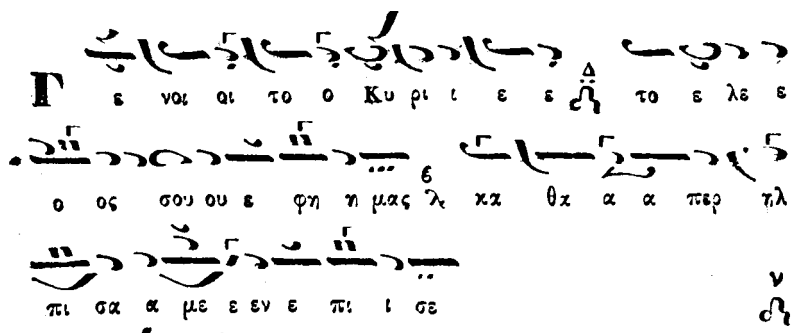 Γ ε νοι οι το ο Κυ ρι ι ε ε Δ το ε λε ε
ο ος σου ου ε φη η μας λ ε κα θα α α περ ηλ
πι σα α με ε εν ε πι ι σε ν